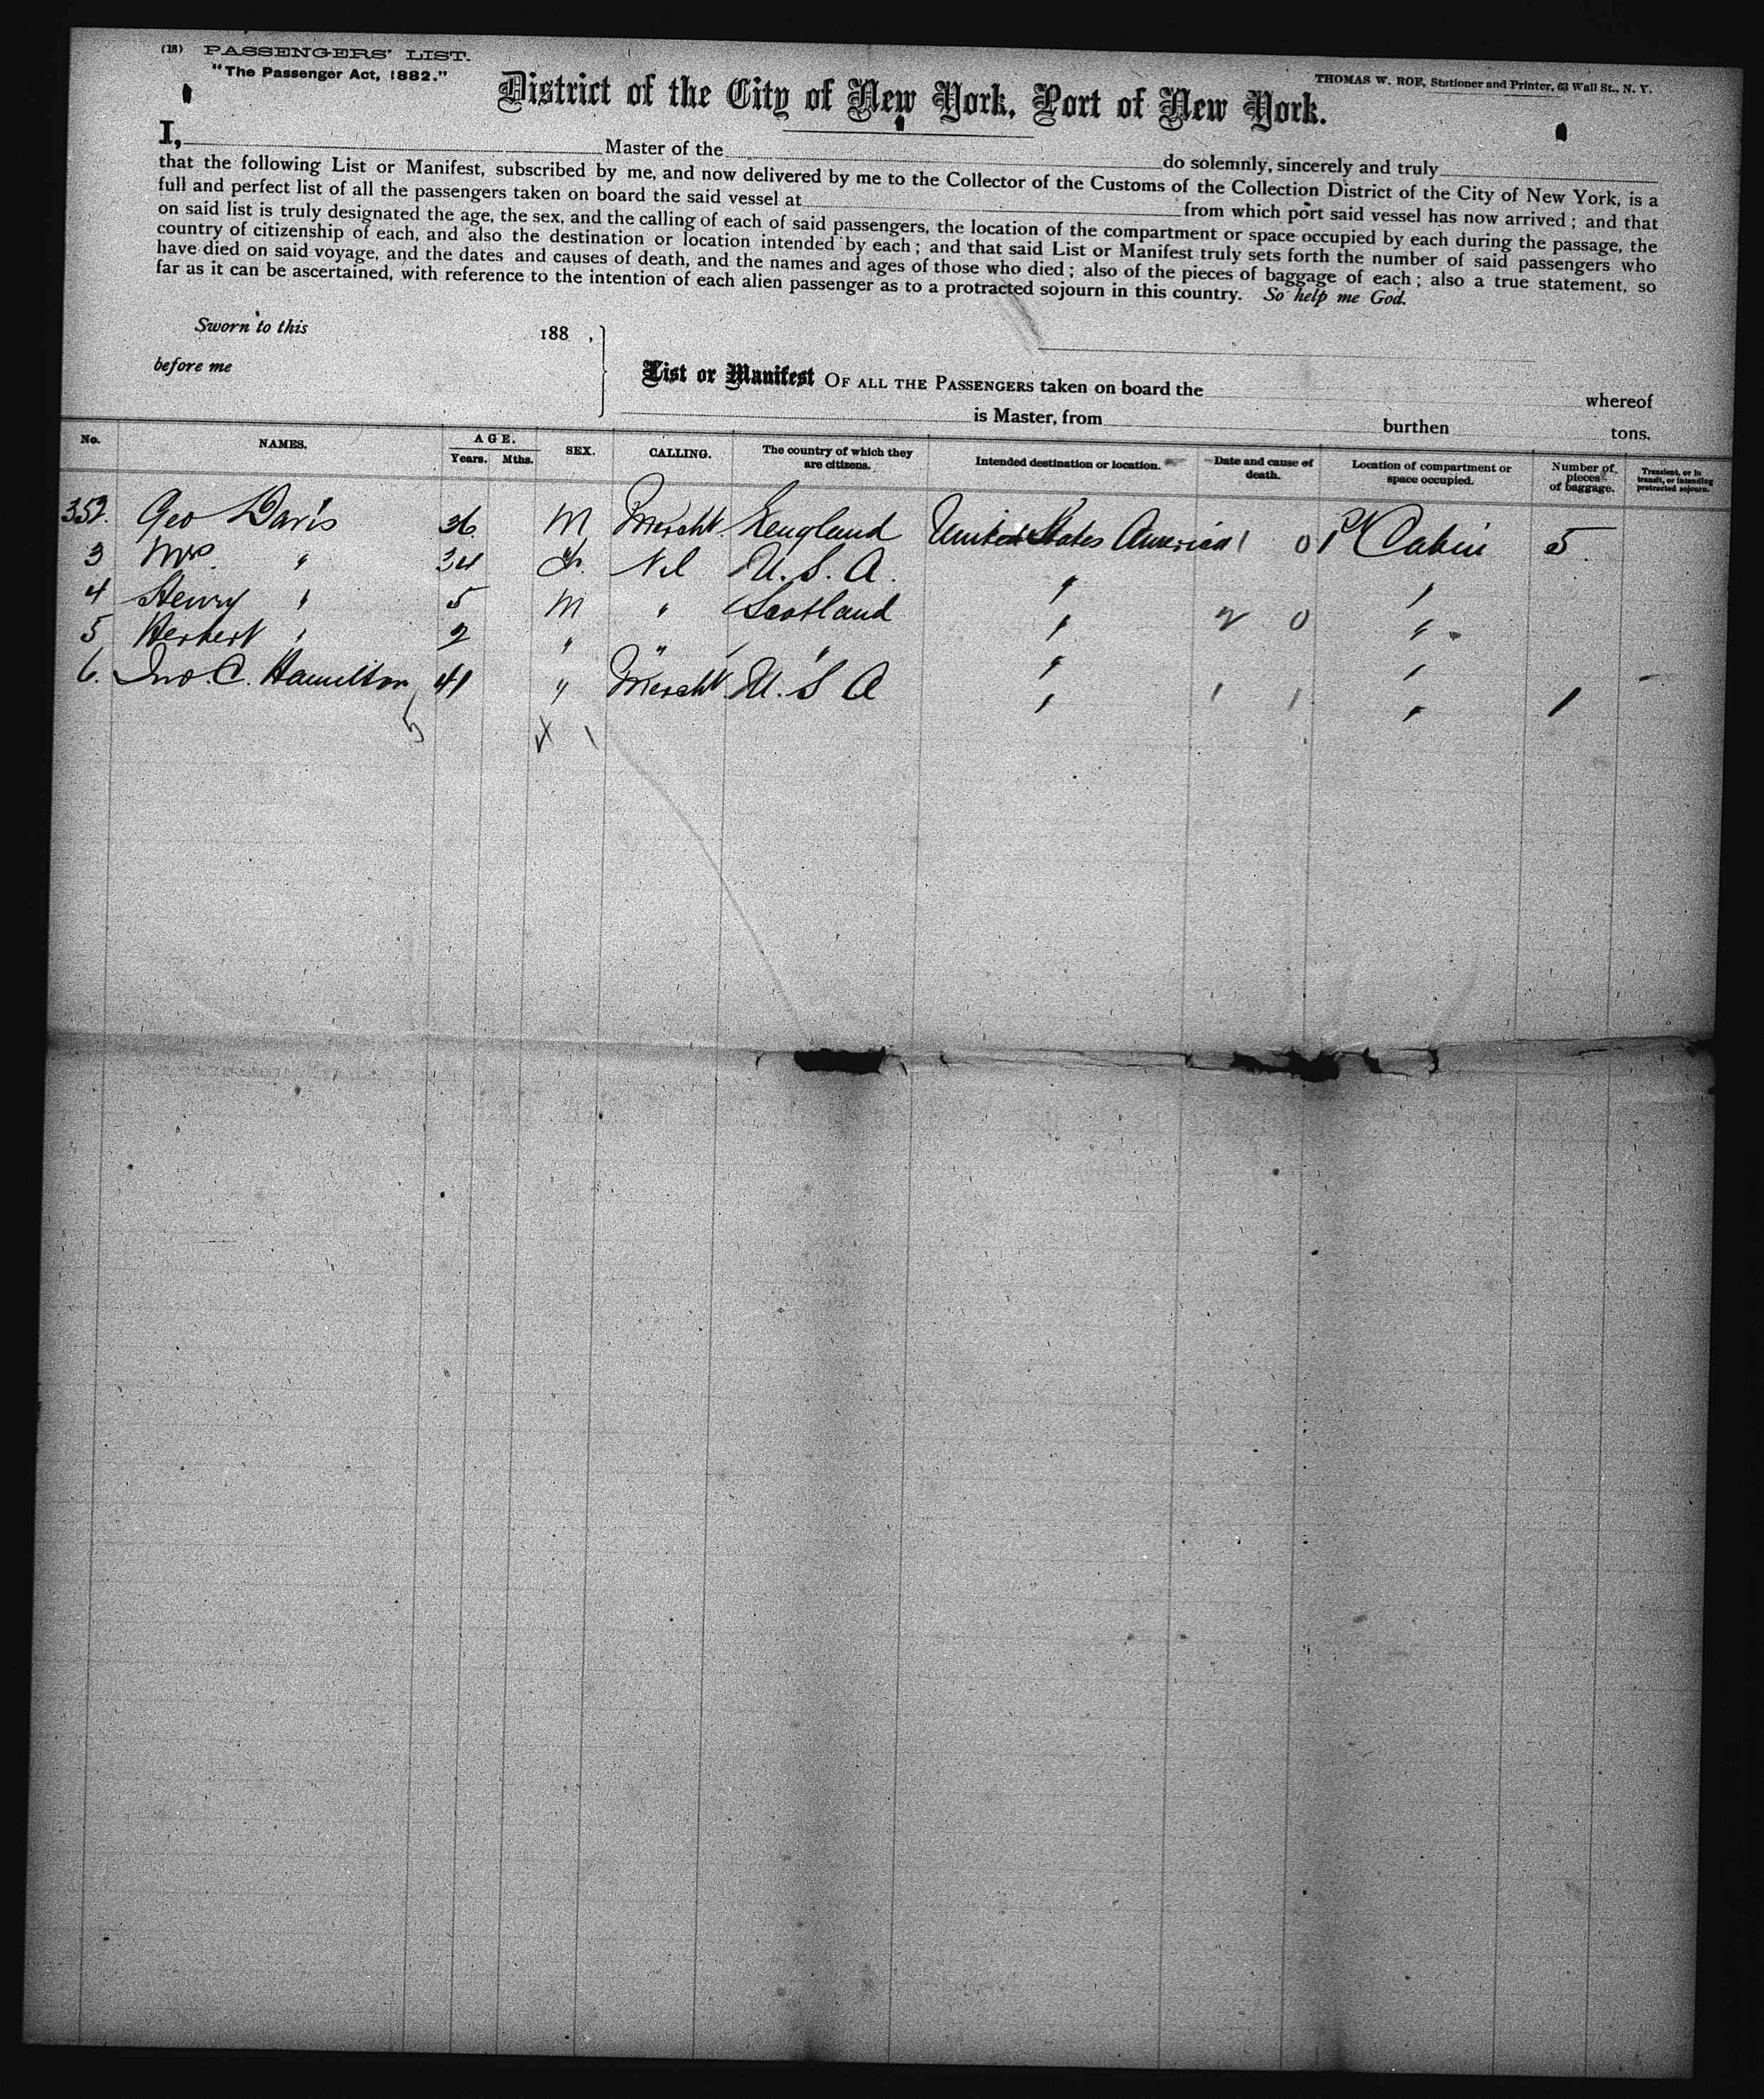 (18) PASSENGERS' LIST.
"The Passenger Act, 1882."
THOMAS W. ROE, Stationer and Printer, 63 Wall St., N. Y.
District of the City of New York, Port of New York.
I, Master of the do solemnly, sincerely and truly
that the following List or Manifest, subscribed by me, and now delivered by me to the Collector of the Customs of the Collection District of the City of New York, is a
full and perfect list of all the passengers taken on board the said vessel at from which port said vessel has now arrived; and that
on said list is truly designated the age, the sex, and the calling of each of said passengers, the location of the compartment or space occupied by each during the passage, the
country of citizenship of each, and also the destination or location intended by each; and that said List or Manifest truly sets forth the number of said passengers who
have died on said voyage, and the dates and causes of death, and the names and ages of those who died; also of the pieces of baggage of each; also a true statement, so
far as it can be ascertained, with reference to the intention of each alien passenger as to a protracted sojourn in this country. So help me God.
Sworn to this 188 ,
before me
List or Manifest OF ALL THE PASSENGERS taken on board the whereof
is Master, from burthen tons.
No. NAMES. AGE. Years. Mths. SEX. CALLING. The country of which they are citizens. Intended destination or location. Date and cause of death. Location of compartment or space occupied. Number of pieces of baggage. Transient, or in transit, or intending protracted sojourn.
352. Geo Davis 36 M Mercht. England United States America 1 0 Cabin 5
3 Mrs. " 34 F. Nil U. S. A. " "
4 Henry " 5 M " Scotland " 2 0 "
5 Herbert " 2 " " " " "
6. Jno. C. Hamilton 41 " Mercht. U. S A " 1 1 " 1
5